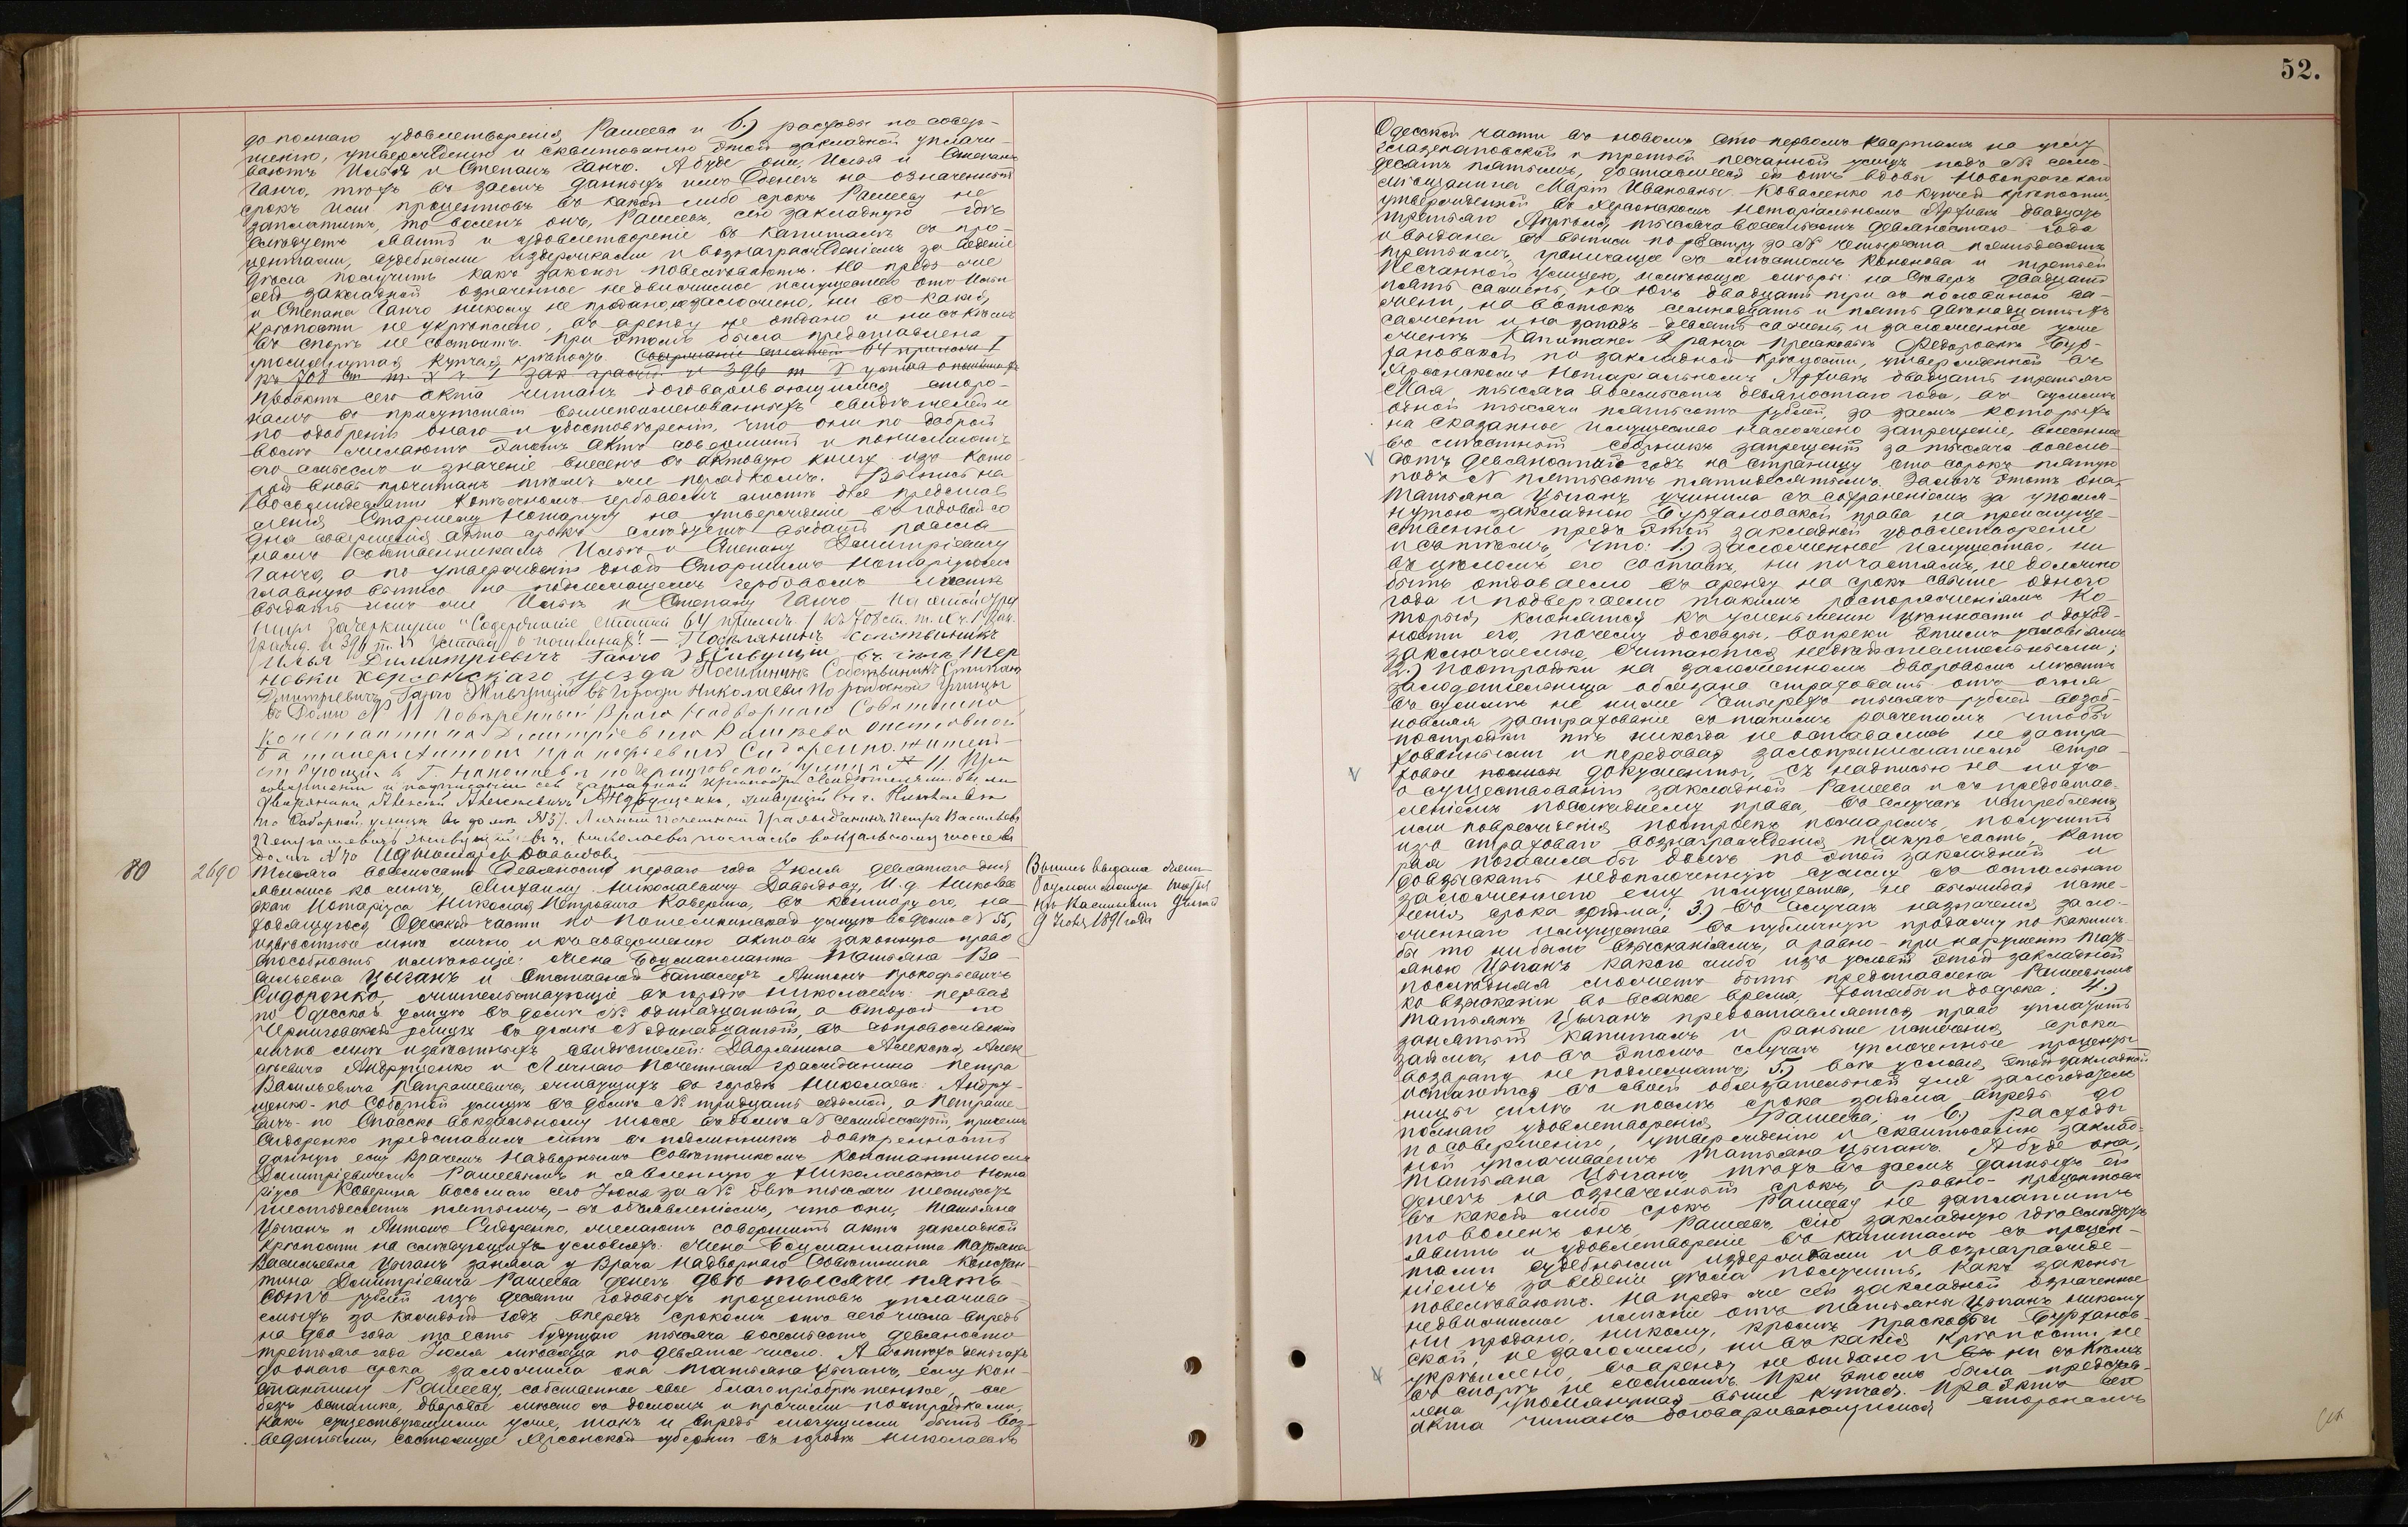 52.
до полнаго удовлетворенія Рашеева и 6.) расходы по совер-
шенію, утвержденію и сквитованію этой закладной уплачи-
ваютъ Илья и Степанъ Ганчо. А буде они, Илья и Степанъ
Ганчо, тѣхъ въ заемъ данныхъ имъ денегъ на означенный
срокъ или процентовъ въ какой либо срокъ Рашееву не
заплатятъ, то воленъ онъ, Рашеевъ, сію закладную гдѣ
слѣдуетъ явить и удовлетвореніе въ капиталѣ съ про-
центами, судебными издержками и вознагражденіемъ за веденіе
дѣла получить какъ законы повелѣваютъ. На предъ же
сей закладной означенное недвижимое имущество отъ Ильи
и Степана Ганчо никому не продано, не заложено, ни въ какія
крѣпости не укрѣплено, въ аренду не отдано и ни съ кѣмъ
въ спорѣ не состоитъ. При этомъ была представлена
упомянутая купчая крѣпость. Содержаніе статей 64 прилож. I
къ 708 ст. т. X ч. I зак. гражд. и 396 т. V устава о пошлинахъ
Проэктъ сего акта читанъ договаривающимися сторо-
намъ въ присутствіи вышепоименованныхъ свидѣтелей и
по одобреніи онаго и удостовѣреніи, что они по доброй
волѣ желаютъ этотъ актъ совершить и понимаютъ
его смыслъ и значеніе внесенъ въ актовую книгу изъ кото-
рой вновь прочитанъ тѣмъ же порядкомъ. Выпись на
восьмидесяти копѣечномъ гербовомъ листѣ для представ-
ленія Старшему Нотаріусу на утвержденіе въ годовой со
дня совершенія акта срокъ слѣдуетъ выдать поселя-
намъ собственникамъ Ильѣ и Степану Димитріевичу
Ганчо, а по утвержденіи оной Старшимъ Нотаріусомъ
главную выпись на подлежащемъ гербовомъ листѣ
выдать имъ же Ильѣ и Степану Ганчо.
зачеркнуто "Содержаніе статей 64 прилож. I къ 708 ст. т. X ч. I Зак.
Гражд. и 396 т. V Устава о пошлинахъ." — Поселянинъ Собственникъ
Илья Димитріевичъ Ганчо Живущій въ Тер
новки Херсонскаго уезда Поселянинъ Собственникъ Степанъ
Дмитревичъ Ганчо Живущій въ Городи Николаеви По
въ Доми № 11 Повѣренный Врача Надворнаго Совѣтника
Константина Дмитріевича Рашеева отставной
баталеръ Антонъ Прокофьевичъ Сидоренко жител-
ствующій в Г. Николаевѣ по Черниговской улицѣ № 11. При
совершеніи и подписаніи сей закладной крѣпости Свидѣтелями были
Дворянинъ Алексѣй Алексѣевичъ Андрущенко, живущій въ г. Николаевѣ
по Соборной улицѣ въ домѣ № 37. Личный Почетный Гражданинъ Петръ Васильевъ
Петрашевичъ живущій въ г. Николаевѣ по Спасско вокзальному шоссе въ
домѣ № 70
80
2690
Тысяча восемьсотъ девяносто перваго года Іюля девятаго дня
явились ко мнѣ, Михаилу Николаевичу Давыдову, И. д. Николаев-
скаго Нотаріуса Николая Петровича Каверина, въ контору его, на-
ходящуюся Одесской части по Потемкинской улицѣ въ домѣ № 55,
извѣстные мнѣ лично и къ совершенію актовъ законную право
способность имѣющіе: жена Боцманмата Татьяна Ва-
сильевна Цыганъ и отставной баталеръ Антонъ Прокофьевичъ
Сидоренко, жительствующіе въ городѣ Николаевѣ: первая
по Одесской улицѣ въ домѣ № одинадцатый, а второй по
Черниговской улицѣ въ домѣ № одинадцатый, въ сопровожденіи
лично мнѣ извѣстныхъ свидѣтелей: Дворянина Алексѣя Алек-
сѣевича Андрущенко и Личнаго Почетнаго гражданина Петра
Васильевича Петрашевича, живущихъ въ городѣ Николаевѣ: Андру-
щенко - по Соборной улицѣ въ домѣ № тридцать седьмой, а Петраше-
вичъ - по Спасско вокзальному шоссе въ домѣ № семидесятый, причемъ
Сидоренко представилъ мнѣ въ подлинникѣ довѣренность
данную ему Врачемъ Надворнымъ Совѣтникомъ Константиномъ
Димитріевичемъ Рашеевымъ и явленную у Николаевскаго Нота-
ріуса Каверина восьмаго сего Іюля за № двѣ тысячи шестьсотъ
шестьдесятъ пятымъ, - съ объявленіемъ, что они, Татьяна
Цыганъ и Антонъ Сидоренко, желаютъ совершить актъ закладной
крѣпости на слѣдующихъ условіяхъ: Жена Боцманмата Татьяна
Васильевна Цыганъ заняла у Врача Надворнаго Совѣтника Констан-
тина Димитріевича Рашеева денегъ двѣ тысячи пять-
сотъ рублей изъ десяти годовыхъ процентовъ уплачива-
емыхъ за каждый годъ впередъ срокомъ отъ сего числа впредь
на два года то есть будущаго тысяча восемьсотъ девяносто
третьяго года Іюля мѣсяца по девятое число. А въ тѣхъ деньгахъ
до онаго срока заложила она Татьяна Цыганъ, ему Кон-
стантину Рашееву, собственное свое благопріобрѣтенное, все
безъ остатка, дворовое мѣсто съ домомъ и прочими постройками,
какъ существующими уже, такъ и впредь могущими быть воз-
веденными, состоящее Херсонской губерніи въ городѣ Николаевѣ
Выпись выдана женѣ
Боцманмата Татья
нѣ Васильевнѣ Цыганъ
9 Іюля 1891 года
Одесской части въ новомъ сто первомъ кварталѣ на углу
Глазенаповской и третьей песчанной улицъ подъ № семь-
десятъ пятымъ, доставшееся ей отъ вдовы Новопражскаго
мѣщанина Марѳы Ивановны Коваленко по купчей крѣпости,
утвержденной въ Херсонскомъ Нотаріальномъ Архивѣ двадцать
третьяго Апрѣля, тысяча восемьсотъ девяностаго года
и выдана въ выписи по реестру за № четыреста пятьдесятъ
третьимъ, граничащее съ мѣстомъ Кононова и третьей
Песчанной улицею, имѣющее мѣры: на сѣверъ двадцать
пять саженъ, на югъ двадцать три съ половиною са-
жени, на востокъ семнадцать и пять двѣнадцатыхъ
сажени и на западъ - девять саженъ, и заложенное уже
женѣ Капитана 2 ранга Прасковьѣ Федоровнѣ Бур-
хановской по закладной крѣпости, утвержденной въ
Херсонскомъ Нотаріальномъ Архивѣ двадцать третьяго
Мая, тысяча восемьсотъ девяностаго года, въ суммѣ
одной тысячи пятьсотъ рублей, за заемъ которыхъ
на сказанное имущество наложено запрещеніе, внесенное
въ мѣстный сборникъ запрещеній за тысяча восемь-
сотъ девяностый годъ на страницу сто сорокъ пятую
подъ № пятьсотъ пятидесятымъ. Залогъ этотъ она,
Татьяна Цыганъ учинила съ сохраненіемъ за упомя-
нутою закладною Бурхановской права на преимуще-
ственное предъ этой закладной удовлетвореніе
и съ тѣмъ, что: 1.) заложенное имущество, ни
въ цѣломъ его составѣ, ни по частямъ, не должно
быть отдаваемо въ аренду на срокъ свыше одного
года и подвергаемо такимъ распоряженіямъ ко-
торыя клонятся къ уменьшенію цѣнности и доход-
ности его, почему договоры, вопреки этимъ условіямъ
заключаемые, считаются недѣйствительными;
2.) постройки на заложенномъ дворовомъ мѣстѣ
залогодательница обязана страховать отъ огня
въ суммѣ не ниже четырехъ тысячъ рублей возоб-
новляя застрахованіе съ такимъ расчетомъ чтобы
постройки тѣ никогда не оставались не застра-
хованными и передавая залогопринимателю стра-
ховые документы, съ надписью на нихъ
о существованіи закладной Рашеева и съ предостав-
леніемъ послѣднему права, въ случаѣ истребленія
или поврежденія построекъ пожаромъ, получить
изъ страховаго вознагражденія такую часть, кото-
рая погасила бы долгъ по этой закладной и
довзыскать недополученную сумму съ остальнаго
заложеннаго ему имущества, не выжидая исте-
ченія срока займа; 3.) въ случаѣ назначенія зало-
женнаго имущества въ публичную продажу по какимъ
бы то ни было взысканіямъ, а равно - при нарушеніи Тать-
яною Цыганъ какого либо изъ условій этой закладной
послѣдняя можетъ быть представлена Рашеевымъ
ко взысканію во всякое время, хотя бы и до срока; 4.)
Татьянѣ Цыганъ предоставляется право уплатить
занятый капиталъ и раньше истеченія срока
займа, но въ этомъ случаѣ уплоченные проценты
возврату не подлежатъ; 5.) всѣ условія этой закладной
остаются въ своей обязательной для залогодатель-
ницы силѣ и послѣ срока займа впредь до
полнаго удовлетворенія Рашеева; и 6.) расходы
по совершенію, утвержденію и сквитованію заклад-
ной уплачиваетъ Татьяна Цыганъ. А буде она,
Татьяна Цыганъ, тѣхъ въ заемъ данныхъ ей
денегъ на означенный срокъ, а равно - процентовъ
въ какой либо срокъ Рашееву не заплатитъ
то воленъ онъ, Рашеевъ, сію закладную гдѣ слѣдуетъ
явить и удовлетвореніе въ капиталѣ съ процен-
тами судебными издержками и вознагражде-
ніемъ за веденіе дѣла получить, какъ законы
повелѣваютъ. На предъ же сей закладной означенное
недвижимое имѣніе отъ Татьяны Цыганъ никому
ни продано, никому, кромѣ Прасковьи Бурханов-
ской, не заложено, ни въ какія крѣпости не
укрѣплено, въ аренду не отдано и ни съ кѣмъ
въ спорѣ не состоитъ. При этомъ была представ-
лена упомянутая выше купчая. Проэктъ сего
акта читанъ договаривающимися сторонамъ